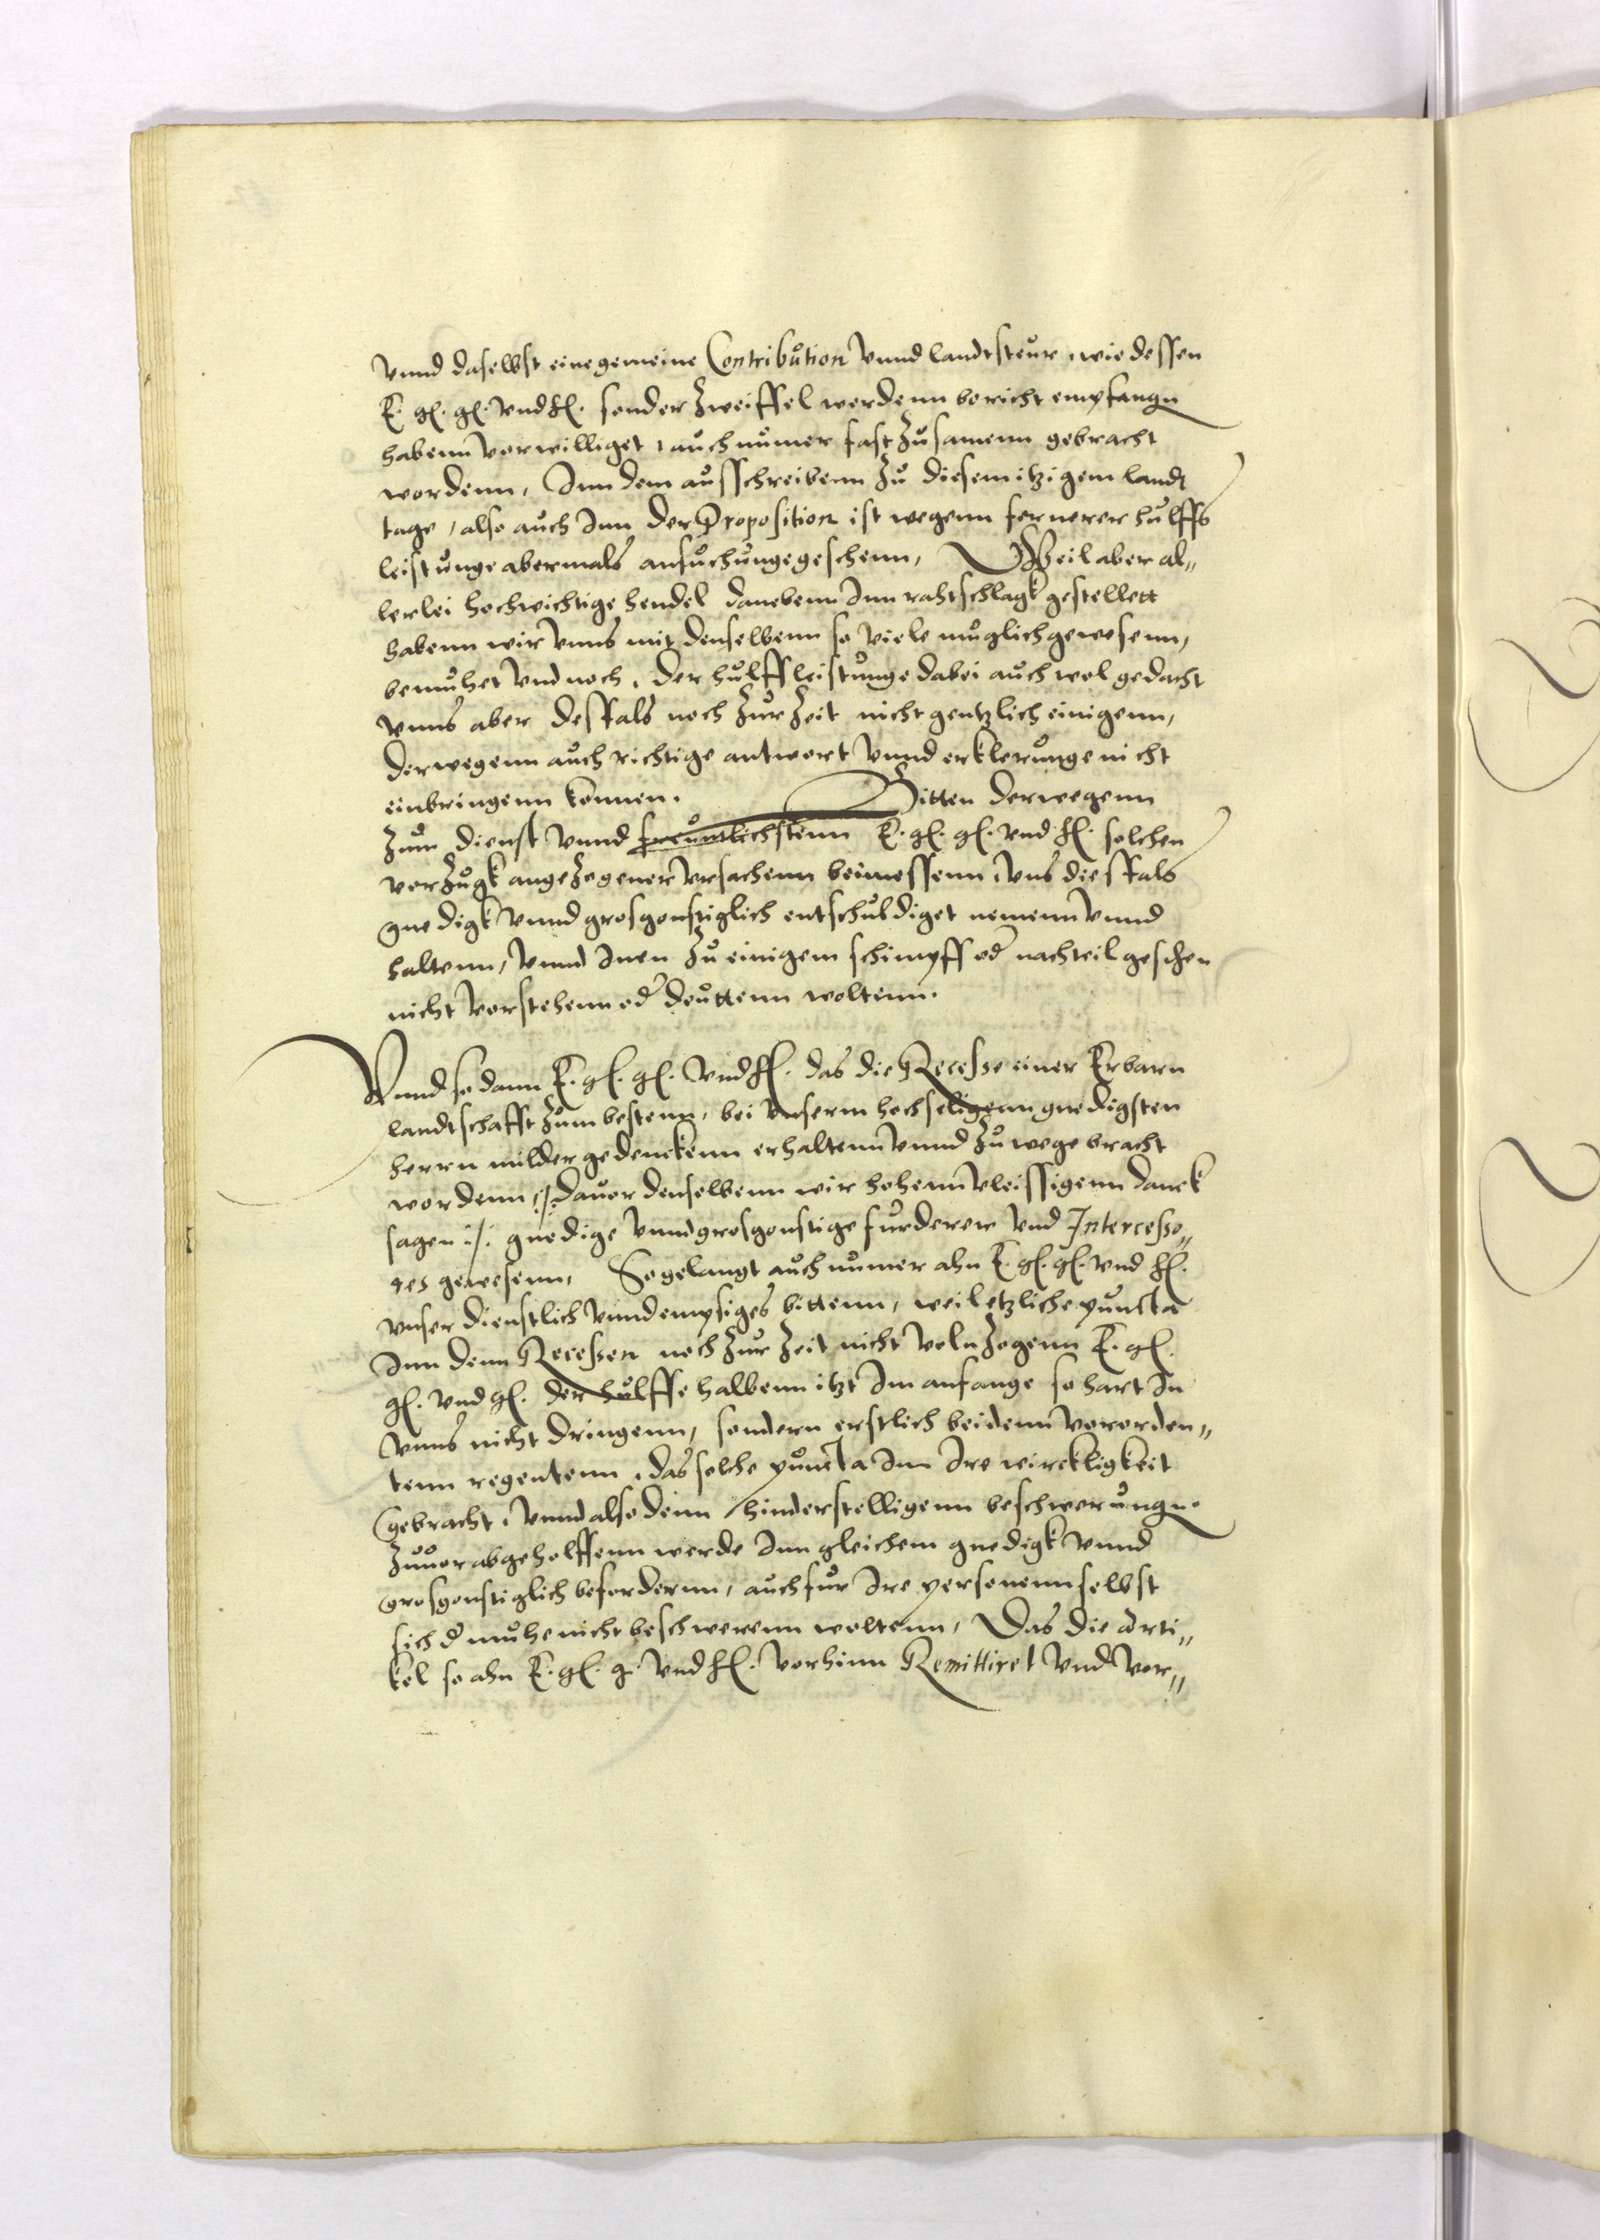 Vnnd daselbst eine gemeine Contribution vnnd landtsteur, wie dessen
E. gl. gl. vnd hl. sonder Zweiffel werdenn bericht empfangn
habenn verwilliget, auch numer fast Zusamenn gebracht
wordenn, Inn dem ausschreibenn Zu diesem itzigem landt
tage, also auch Inn der Proposition ist wegenn fernerer hulffs
leistunge abermals ansuchunge geschenn, Weil aber al„
lerlei hochwichtige hendel danebenn Inn rahtschlagk gestellett
habenn wir vnns mit denselbenn so viele muglich gewesenn,
bemuhet vnd noch, der hulffleistunge dabei auch wol gedacht
vnns aber desfals noch Zur Zeit nicht gentzlich einigenn,
derwegenn auch richtige antwort vnnd erklerunge nicht
einbringenn konnen. Bitten derwegenn
Zum dienst vnnd freuntlichstenn E. gl. gl. vnd hl. solchen
verZugk angeZogener vrsachenn beimessenn, vns diesfals
gnedigk vnnd grosgonstiglich entschuldiget nemenn vnnd
haltenn, vnnd Inen Zu einigem schimpff od nachteil geschen
nicht verstehenn od deuttenn woltenn.
Vnnd so dann E. gl. gl. vnd hl. das die Recesse einer Erbarn
landtschafft Zum bestenn, bei vnserm hochseligenn gnedigsten
herrn milder gedenckenn erhaltenn vnnd Zu wege bracht
wordenn, /: dauor denselbenn wir hohenn vleissigenn danck
sagen :/: gnedige vnnd grosgonstige furderer vnd Intercesso„
res gewesenn, So gelangt auch numer ahn E. gl. gl. vnd hl.
vnser dienstlich vnnd empsiges bittenn, weil etzliche puncta
Inn denn Recessen noch Zur Zeit nicht volnZogenn E. gl.
gl. vnd gl. der hulffe halbenn itzt Im anfange so hart In
vnns nicht dringenn, sondern erstlich bei denn verorden„
tenn regentenn, das solche puncta Inn Ire wirckligkeit
gebracht, vnnd also denn hinderstelligenn beschwerungn.
Zuuor abgeholffenn werde Inn gleichem gnedigk vnnd
grosgonstiglich befordernn, auch fur Ire personenn selbst
sich d muhe nicht beschwerenn woltenn, Das die arti„
kel so ahn E. gl. g. vnd hl. vorhinn Remittiret vnd ver„